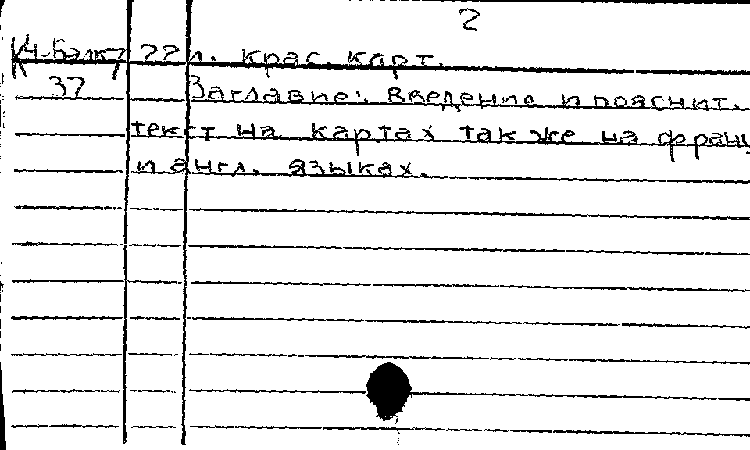 2
К4-Балк 22 л. крас. карт.
37 Заглавие: введение и пояснит.
текст на картах так же на франц
и англ. языках.